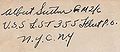 Albert Sutton GM2/c
U.S.S. LST 355 Fleet P.O.
N.Y.C. N.Y.